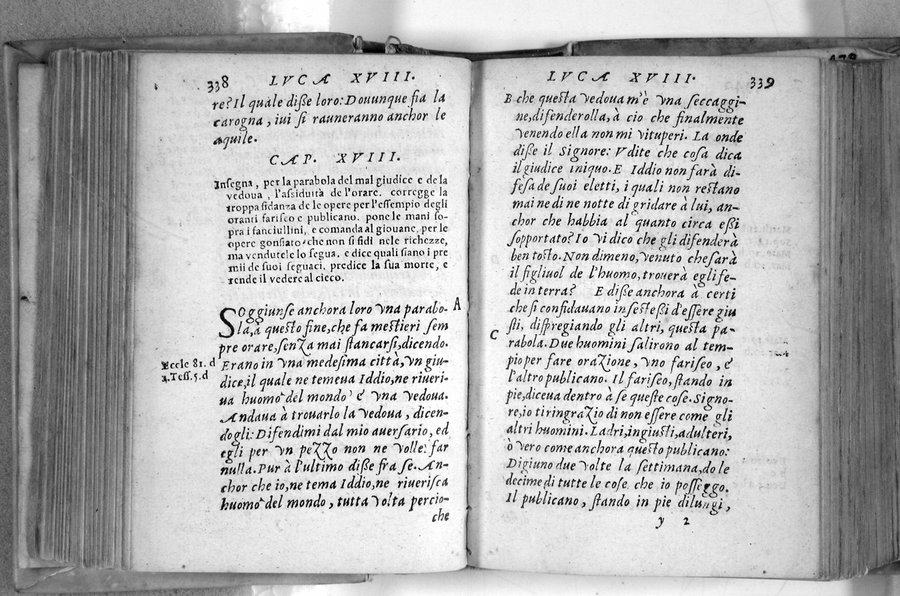 338
LVCA XVIII.
re? Il quale diſſe loro: Douunque fia la
carogna, iui si rauneranno anchor le
aquile.
CAP. XVIII.
Inſegna, per la parabola del mal giudice e de la
vedoua, l'aſſiduità de l'orare. corregge la
troppa fidanza de le opere per l'eſſempio degli
oranti fariſeo e publicano. pone le mani so-
pra i fanciullini, e comanda al giouane, per le
opere gonfiato, che non ſi fidi nele richezze,
ma vendutele lo ſegua. e dice quali ſiano i pre
mii de ſuoi ſeguaci. predice la ſua morte, e
rende il vedere al cieco.
SOggiunſe anchora loro vna parabo- A
la, à queſto fine, che fa meſtieri ſem
pre orare, ſenza mai ſtancarſi, dicendo.
Eccle 81. d
Erano in vna medeſima città, vn giu-
1.Teſſ.5.d
dice, il quale ne temeua Iddio, ne riueri-
ua huomo del mondo é vna vedoua.
Andaua à trouarlo la vedoua, dicen-
dogli: Difendimi dal mio auerſario, ed
egli per vn pezzo non ne volle far
nulla. Pur à l'ultimo diſſe fra ſe. An-
chor che io, ne tema Iddio, ne riueriſca
huomo del mondo, tutta volta percio-
che
LVCA XVIII.
339
B che queſta vedoua m'è vna ſeccaggi-
ne, difenderolla, à cio che finalmente
venendo ella non mi vituperi. La onde
diſſe il Signore: Vdite che coſa dica
il giudice iniquo. E Iddio non farà di-
feſa de ſuoi eletti, i quali non reſtano
mai ne dì ne notte di gridare à lui, an-
chor che habbia al quanto circa eßi
ſopportato? Io vi dico che gli difenderà
ben toſto. Non dimeno, venuto che ſarà
il figliuol de l'huomo, trouerà egli fe-
de in terra? E diſſe anchora à certi
che ſi confidauano in ſe ſteßi d'eſſere giu
C ſti, diſpregiando gli altri, queſta pa-
rabola. Due huomini ſalirono al tem-
pio per fare orazione, vno fariſeo, é
l'altro publicano. Il fariſeo, ſtando in
pie, diceua dentro à ſe queſte coſe. Signo-
re, io ti ringrazio di non eſſere come gli
altri huomini. Ladri, ingiuſti, adulteri,
ò vero come anchora queſto publicano:
Digiuno due volte la ſettimana, do le
decime di tutte le coſe che io poſſeggo.
Il publicano, ſtando in pie dilungi,
y 2